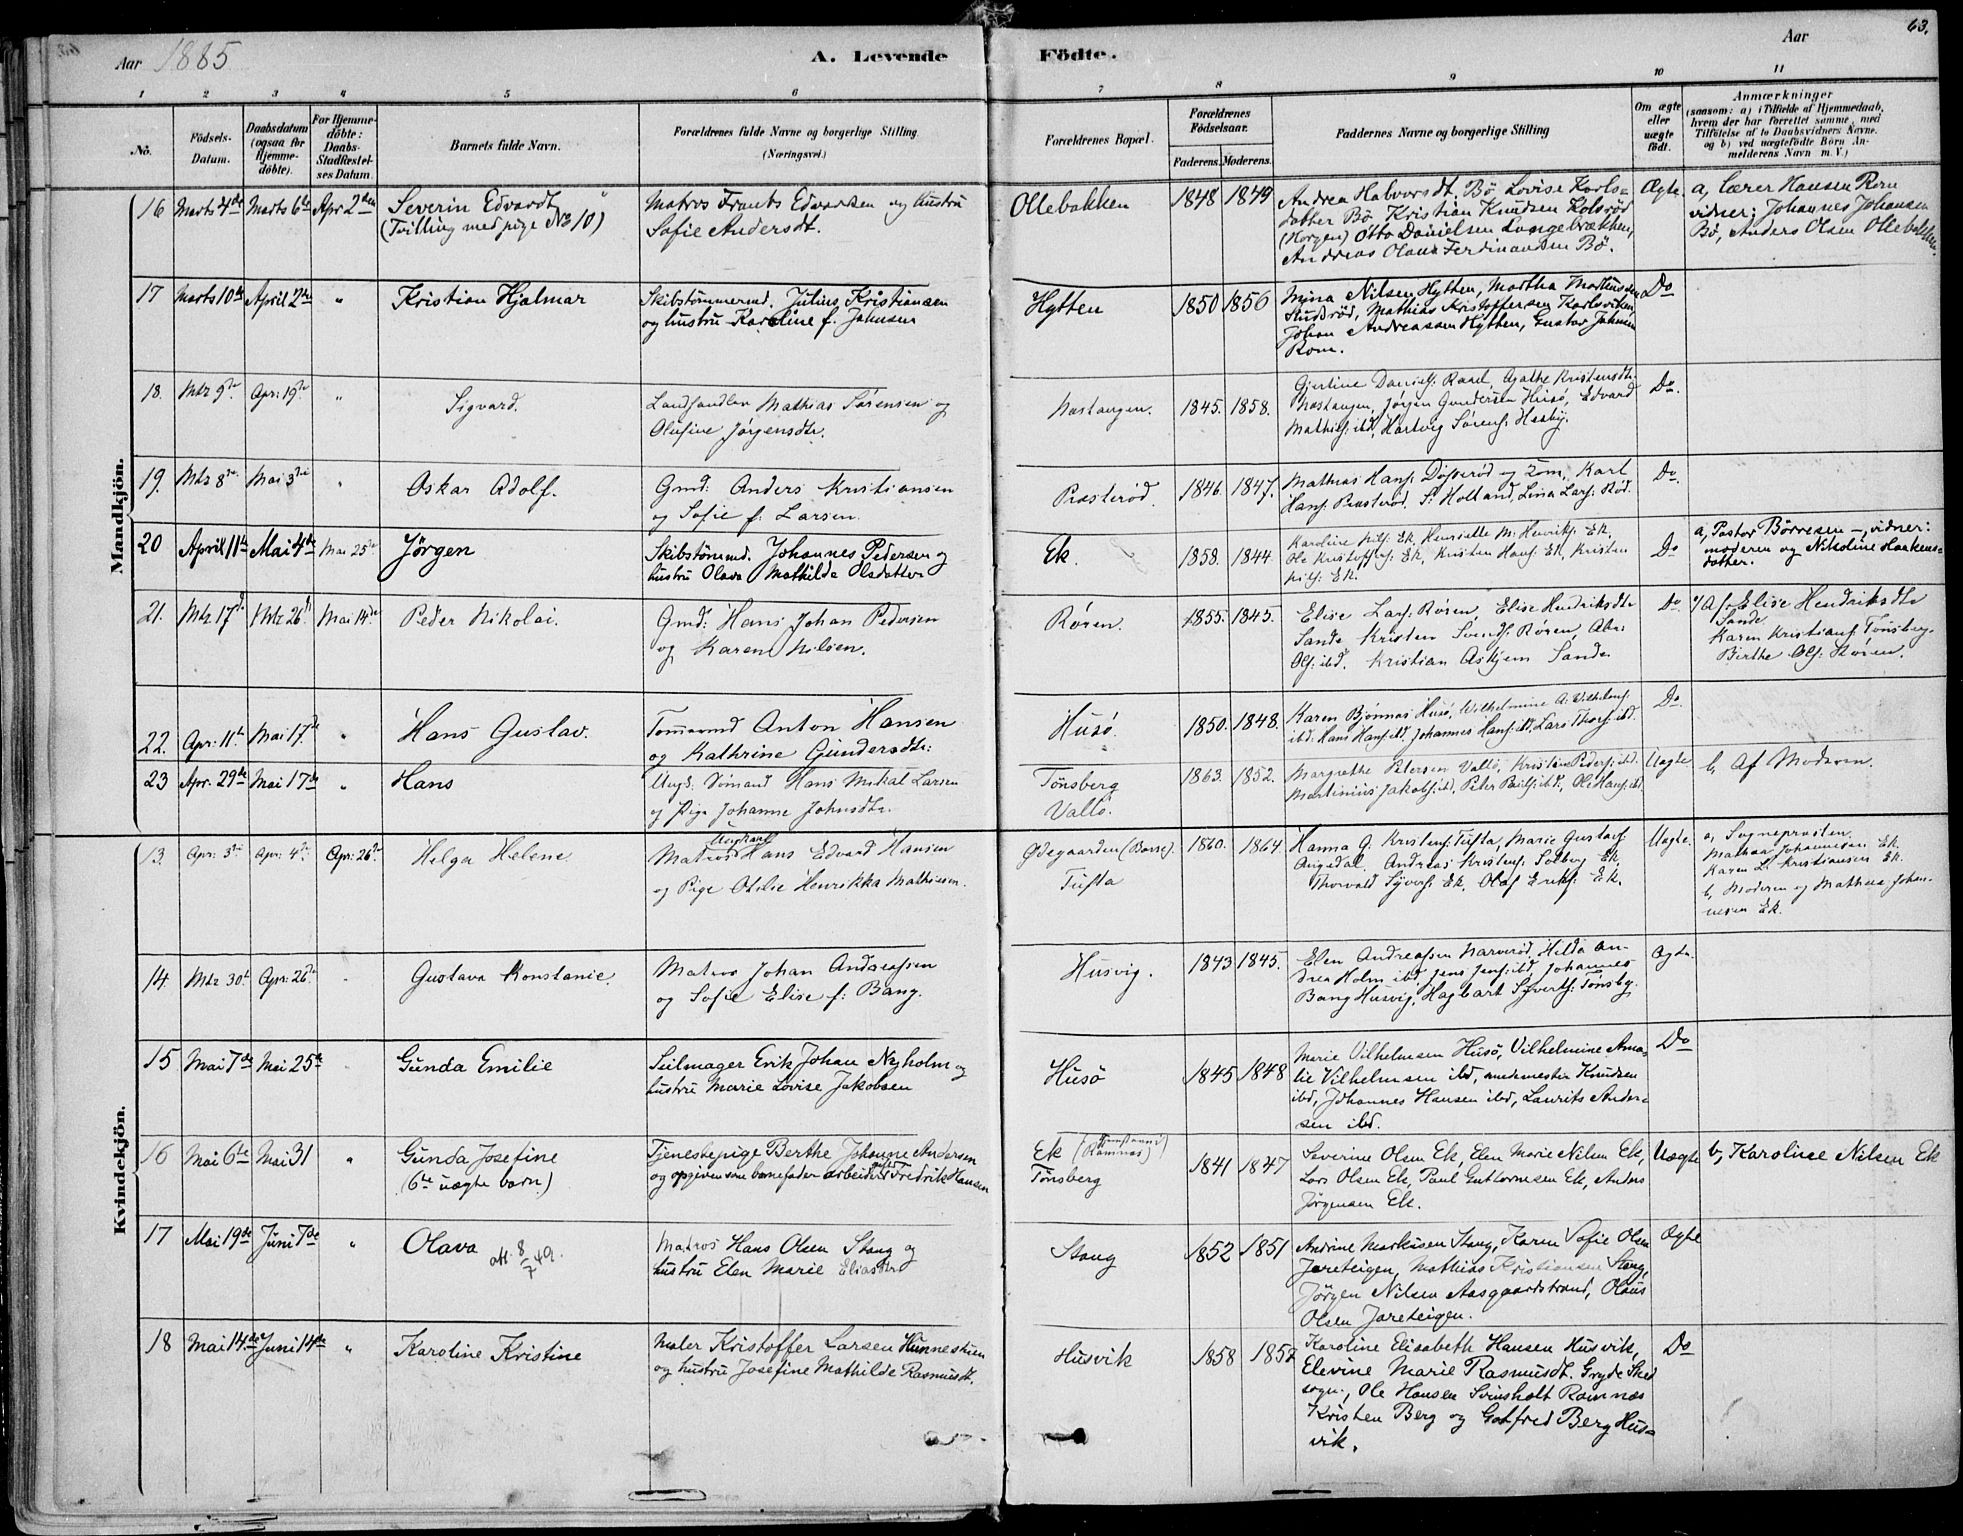 Aar 1885
A. Levende Födte.
Aar
63.
1 2 3 4 5 6 7 8 9 10 11
No.
Födsels-
Datum.
Daabsdatum
(ogsaa for
Hjemme-
döbte).
For Hjemme-
döbte:
Daabs-
Stadfæstel-
ses Datum.
Barnets fulde Navn.
Forældrenes fulde Navne og borgerlige Stilling.
(Næringsvei.)
Forældrenes Bopæl.
Forældrenes
Födselsaar.
Faderens. Moderens.
Faddernes Navne og borgerlige Stilling
Om ægte
eller
uægte
födt.
Anmærkninger
(saasom: a) i Tilfælde af Hjemmedaab,
hvem der har forrettet samme, med
Tilföielse af to Daabsvidners Navne.
og b) ved uægtefödte Börn An-
melderens Navn m. V.)
Mandkjön.
16 Marts 4de Marts 6te Apr 2den
Severin Edvardt
(Tvilling med pige No 10)
Matros Frants Edvardsen og hustru
Sofie Andersdt.
Ollebakken 1848 1849
Andrea Halvorsdt. Bö Lovise Karls=
datter Bö Kristian Knudsen Kolsröd
(Horgen) Otto Danielsen Langebrækken,
Andreas Olaus Ferdinandsen Bö.
Ægte
a, Lærer Hansen Rom
vidner: Johannes Johansen
Bö, Anders Olsen Ollebakken.
17 Marts 10de April 2den "
Kristian Hjalmar
Skibstömmermd. Julius Kristiansen
og hustru Karoline f. Jahnsen
Hytten 1850 1856
Mina Nilsen Hytten, Martha
Mathias Kristoffersen Karlsviken
Johan Andreassen Hytten, Gustav Jahnsen
Rom.
Do
18. Mtz 9de Apr: 19de "
Sigvard.
Landhandler Mathias Sørensen og
Olufine Jørgensdtr.
Nastangen. 1845. 1858.
Gjertine Daniels: Raael, Agathe Kristensdtr.
Nastangen, Jørgen Gundersen Husø, Edvard
Mathis: ibd, Hartvig Sørens: Hesby.
Do.
19. Mtz 8de Mai 3die "
Oskar Adolf.
Gmd: Anders Kristiansen
og Sofie f: Larsen.
Præsterød. 1846. 1847.
Mathias Hans: og Tom, Karl
Hans: Præsterød. S: Holland, Lina Lars: Rød.
Do.
20 April 11te Mai 4de Mai 25de
Jörgen
Skibstömmd. Johannes Pedersen og
hustru Olava Mathilde Olsdatter
Ek. 1858. 1844
Karoline Nils: Ek, Henriette M: Henriks: Ek,
Ole Kristoffers: Ek, Kristen Hans: Ek, Kristen
Nils: Ek.
Do
a, Pastor Börresen —, vidner:
moderen og Nikoline Haakens=
datter.
21. Mtz 17de Mtz 26de Mai 14de
Peder Nikolai.
Gmd: Hans Johan Pedersen
og Karen Nilsen.
Røren. 1855. 1845.
Elise Lars: Røren, Elise Hendriksdtr
Sande Kristen Svends: Røren, Abr:
Ols: ibd. Kristian Askjem Sande
Do
Af Elise Hendriksdtr
Sande
Karen Kristians: Tønsberg.
Birthe Ols: Røren.
22. Apr: 11te Mai 17de "
Hans Gustav.
Tømmermd Anton Hansen
og Kathrine Gundersdtr:
Husø. 1850. 1848.
Karen Bjønnæs Husø, Wilhelmine A. Wilhelms:
ibd. Hans Hans: ibd, Johannes Hans: ibd, Lars Thors: ibd.
Do.
23 Apr. 29de Mai 17de "
Hans
Ungk. Sømand Hans Mikal Larsen
og Pige Johanne Johnsdtr.
Tønsberg
Vallø. 1863. 1852.
Margrethe Petersen Vallø, Kristen Peders: ibd.
Martinius Jakobs: ibd, Peter Pauls: ibd. Ole Hans: ibd.
Uægte
b, Af Moderen.
Kvindekjön.
13. Apr: 3die Apr: 4de Apr: 26de
Helga Helene
Ungkarl
Matros Hans Edvard Hansen
og Pige Otilie Henrikka Mathisen.
Ødegaarden (Borre).
Tufta 1860. 1864
Hanna G. Kristens: Tufta, Marie Gustavs:
Augedal, Andreas Kristens: Solberg Ek,
Thorvald Syvers: Ek, Olaf Eriks: Ek.
Uægte.
a, Sognepræsten.
Mathea Johannesen Ek.
Karen L. Kristiansen Ek.
b, Moderen og Mathea Johan-
nesen Ek.
14. Mtz 30te Apr: 26de
Gustava Konstanie.
Matros Johan Andreassen
og Sofie Elise f: Bang.
Husvig. 1843 1845.
Elen Andreassen Narverød, Hilda An-
drea Holm ibd, Jens Jens: ibd, Johannes
Bang Husvig, Hagbart Syverts: Tønsbg.
Ægte.
15 Mai 7de Mai 25de
Gunda Emilie
Seilmager Erik Johan Nyholm og
hustru Marie Lovise Jakobsen
Husö 1845 1848
Marie Vilhelmsen Husö, Vilhelmine Ama=
lie Vilhelmsen ibd, Knudsen
ibd, Johannes Hansen ibd, Laurits Ander=
sen ibd.
Do
16 Mai 6te Mai 31 "
Gunda Josefine
(6te uægte barn)
Tjenestepige Berthe Johanne Andersen
og opgiven som barnefader arbeider Fredrik Hansen
Ek (Ramnæs)
Tönsberg 1841 1847
Severine Olsen Ek, Elen Marie Nilsen Ek,
Lars Olsen Ek, Paul Guttormsen Ek, Anders
Jörgensen Ek.
Uægte
b, Karoline Nilsen Ek
17 Mai 19de Juni 7de "
Olava att. 8/7 49.
Matros Hans Olsen Stang og
hustru Elen Marie Eliasdtr
Stang 1852 1851
Andrine Markusen Stang, Karen Sofie Olsen
Jareteigen, Mathias Kristiansen Stang,
Jörgen Nilsen Aasgaardstrand, Olaus
Olsen Jareteigen.
Ægte
18 Mai 14de Juni 14de "
Karoline Kristine
Maler Kristoffer Larsen Hunnestun
og hustru Josefine Mathilde Rasmusdt.
Husvik 1858 1857
Karoline Elisabeth Hansen Husvik,
Elevine Marie Rasmusdt. Gryde Sted
sogn., Ole Hansen Svinsholt Ramnæs
Kristen Berg og Gotfred Berg Hus=
vik.
Do